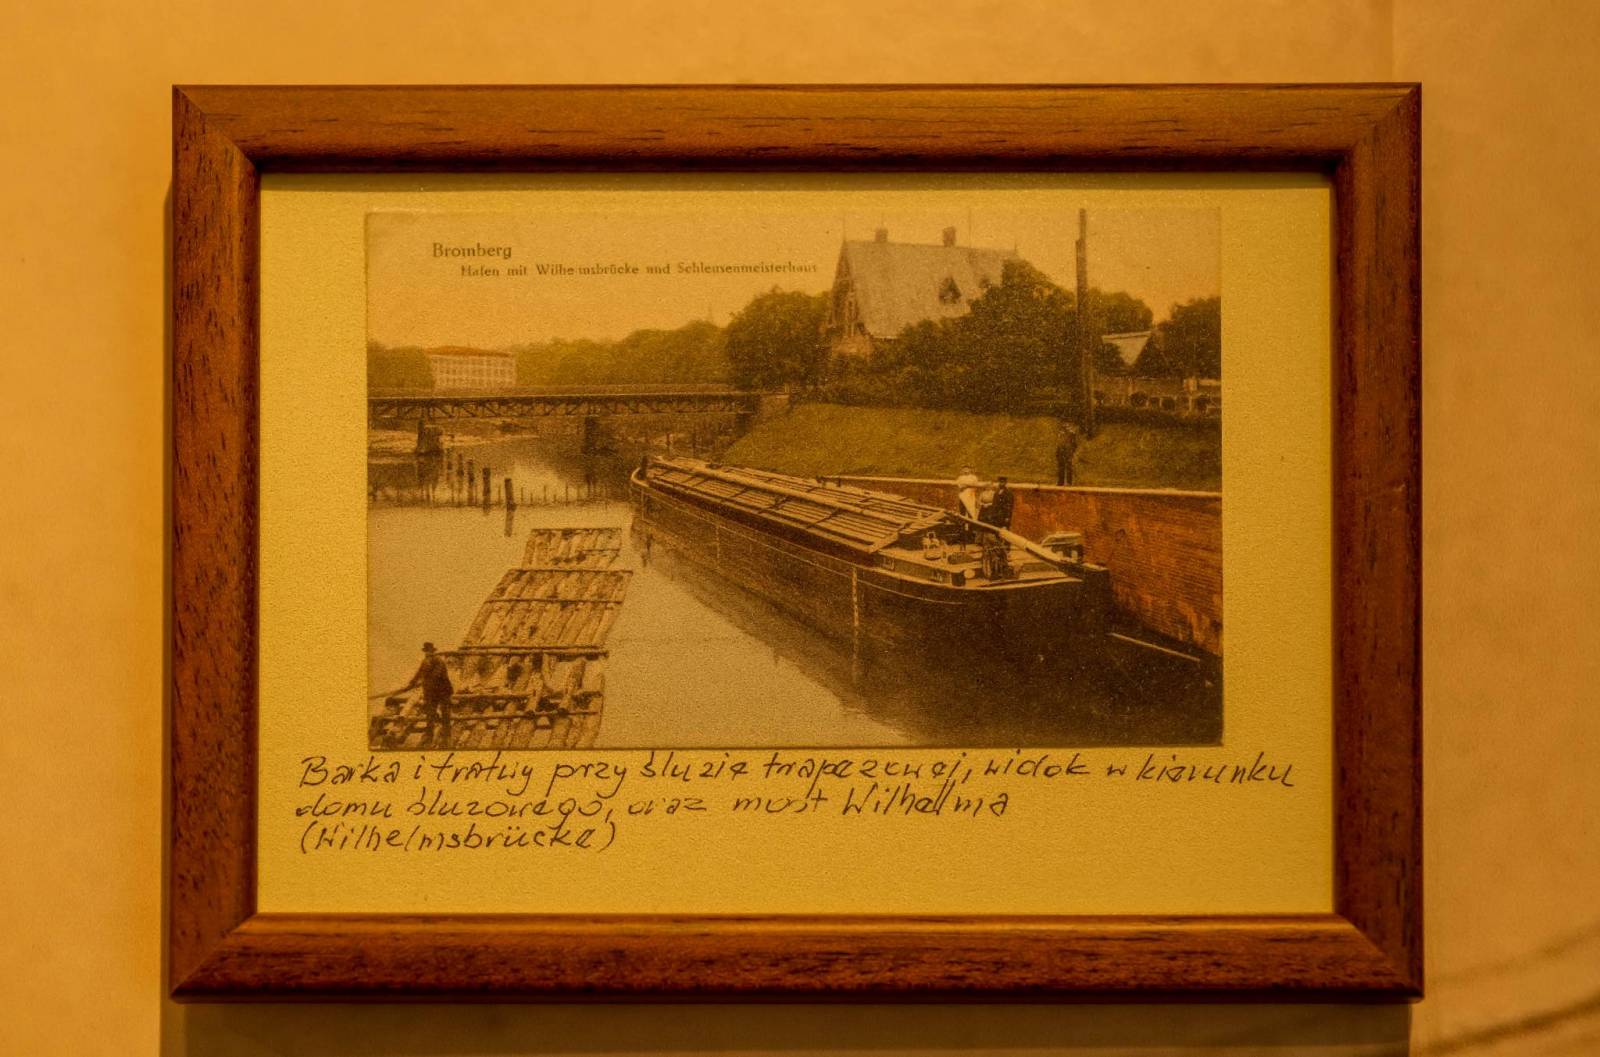 Bromberg
Hafen mit Wilhelmsbrücke und Schleusenmeisterhaus
Barka i tratwy przy śluzie trapezowej, widok w kierunku
domu śluzowego, oraz most Wilhelma
(Wilhelmsbrücke)